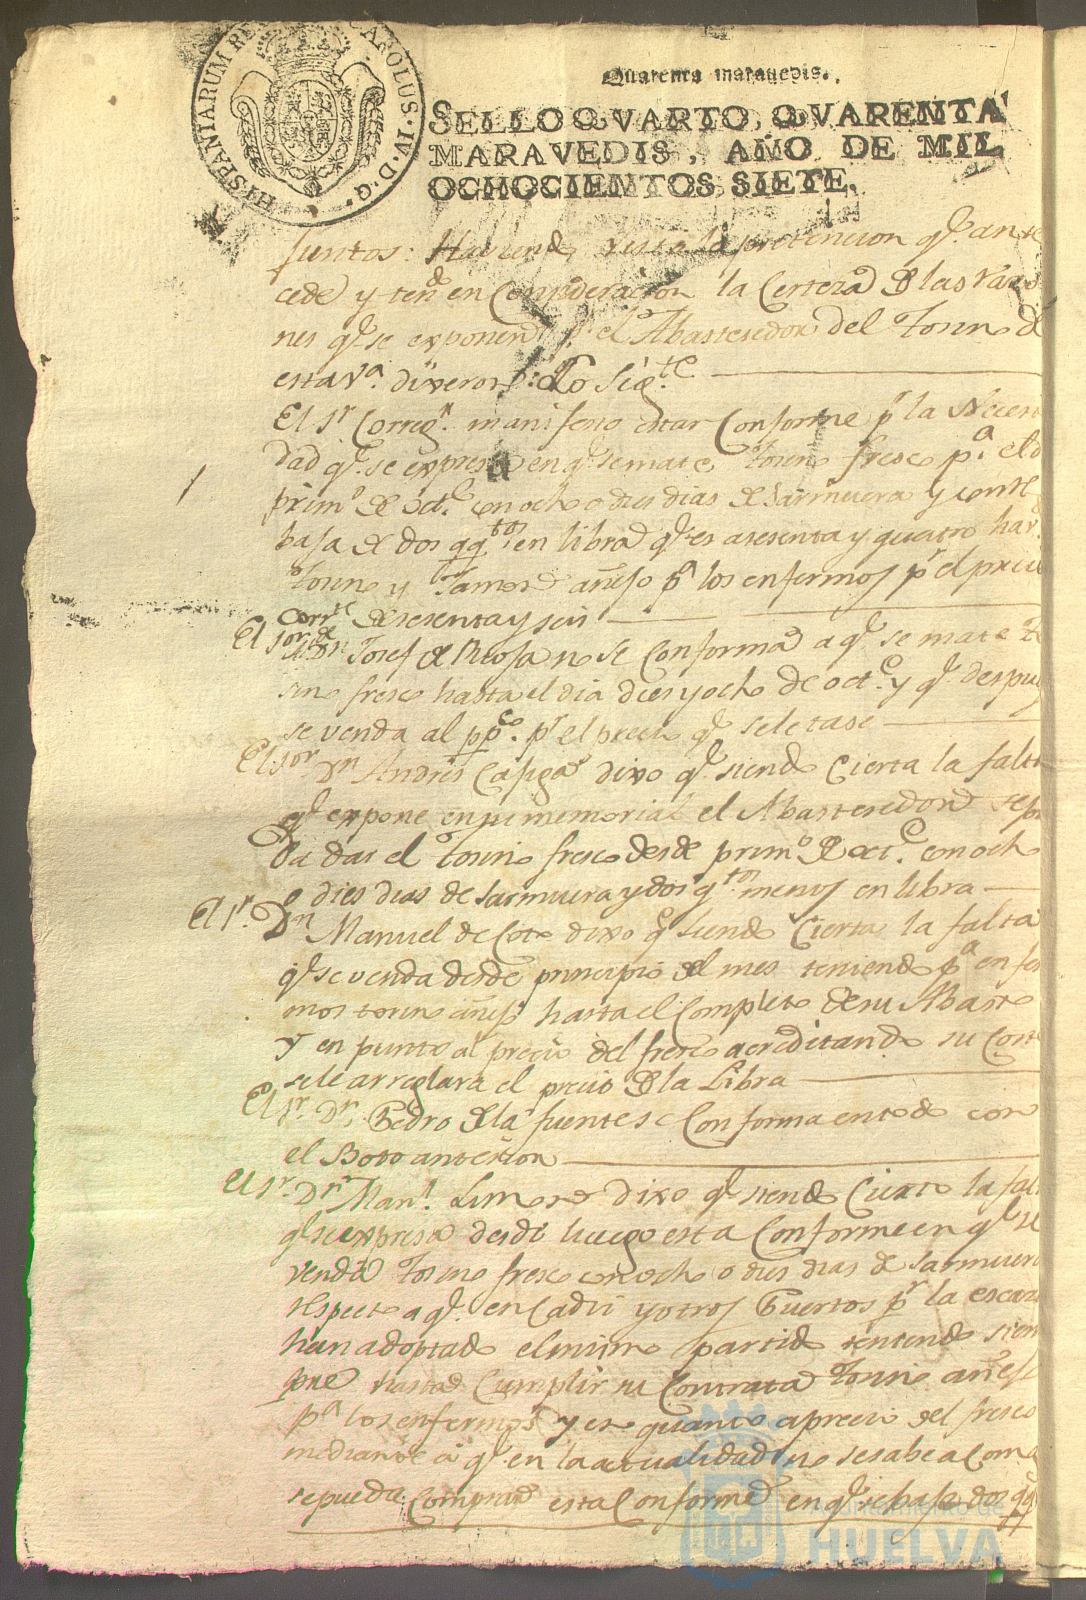 HISPANIARUM RE CAROLUS · IV · D · G ·
Quarenta maravedis.
SELLO QVARTO, QVARENTA
MARAVEDIS, AÑO DE MIL
OCHOCIENTOS SIETE.
juntos: Haviendo visto la pretencion q.e ante
cede y ten.do en Consideracion la Certeza de las Razo
nes q.e se exponen p.r el Abastesedor del Tosino de
esta V.a dixeron lo sig.te
El S.r Correg.r manifesto estar Conforme p.r la Nécesi
dad q.e se expresa en q.e se mate Tosino fresco p.a el d
prim.o de Oct.e con ocho o dies dias de Sarmuera y con la
baja de dos q.tos en libra q.e es a sesenta y quatro
Tosino y añejo p.a los enfermos p.r el precio
Corr.te de sesenta y seis
El S.or D.n Josef de no se Conforma a q.e se mate To
sino fresco hasta el dia dies y ocho de Oct.e y q.e despues
se venda al pp.co p.r el precio q.e se le tase
El S.or D.n Andres dixo q.e siendo Cierta la falta
q.e expone en su memorial el Abastesedor se po
da dar el tosino fresco desde prim.o de Oct.e con ocho
o dies dias de Sarmuera y dos q.tos menos en libra
El S.r D.n Manuel de Coto dixo q.e siendo Cierta la falta
q.e se venda desde principio del mes teniendo p.a enfer
mos tosino añejo hasta el Completo de su Abasto
Y en punto al precio del fresco acreditando su Costo
se le arreglara el precio de la Libra
El S.r D.n Pedro de la fuente se Conforma en todo con
el Boto anterior
El S.r D.n Man.l Limon dixo q.e siendo Cierto la falta
q.e se expresa desde luego esta Conforme en q.e se
venda Tosino fresco con ocho o dies dias de Sarmuera
respecto a q.e en Cadiz y otros Puertos p.r la escaz
han adoptado el mismo partido teniendo siem
pre hasta Cumplir su Contrata Tosino añejo
p.a los enfermos y en quanto a precio del fresco
mediante a q.e en la actualidad no se sabe a como
se pueda Comprar esta Conforme en q.e se baje dos q.tos
Ayuntamiento de
HUELVA